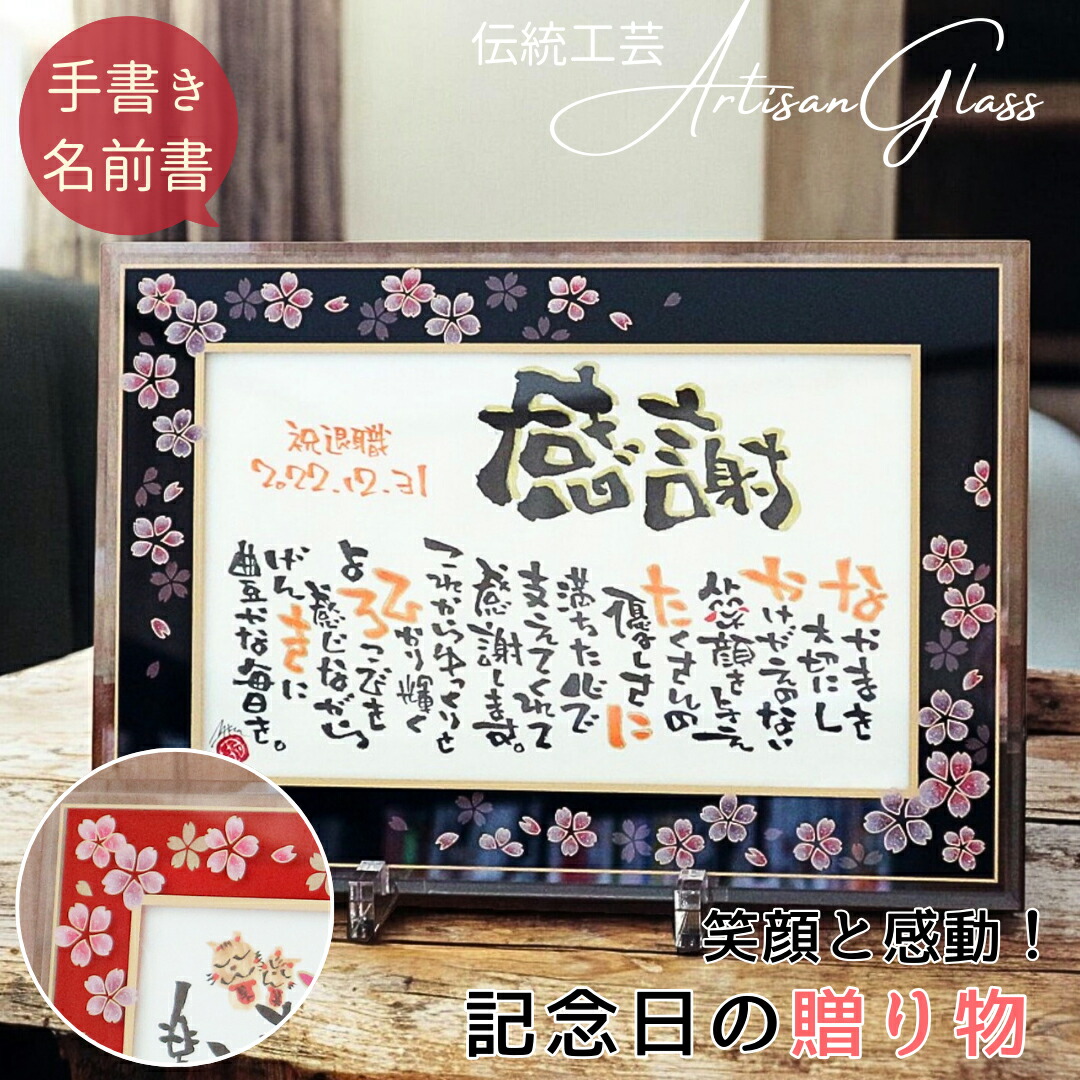 手書き
名前書
伝統工芸
Artisan Glass
感謝
祝退職
2022.12.31
なかまを
大切にし
かけがえのない
笑顔をささえ
たくさんの
優しさに
満ちた心で
支えてくれて
感謝します。
これからゆっくりと
ひかり輝く
よろこびを
感じながら
げんきに
豊かな毎日を。
笑顔と感動！
記念日の贈り物